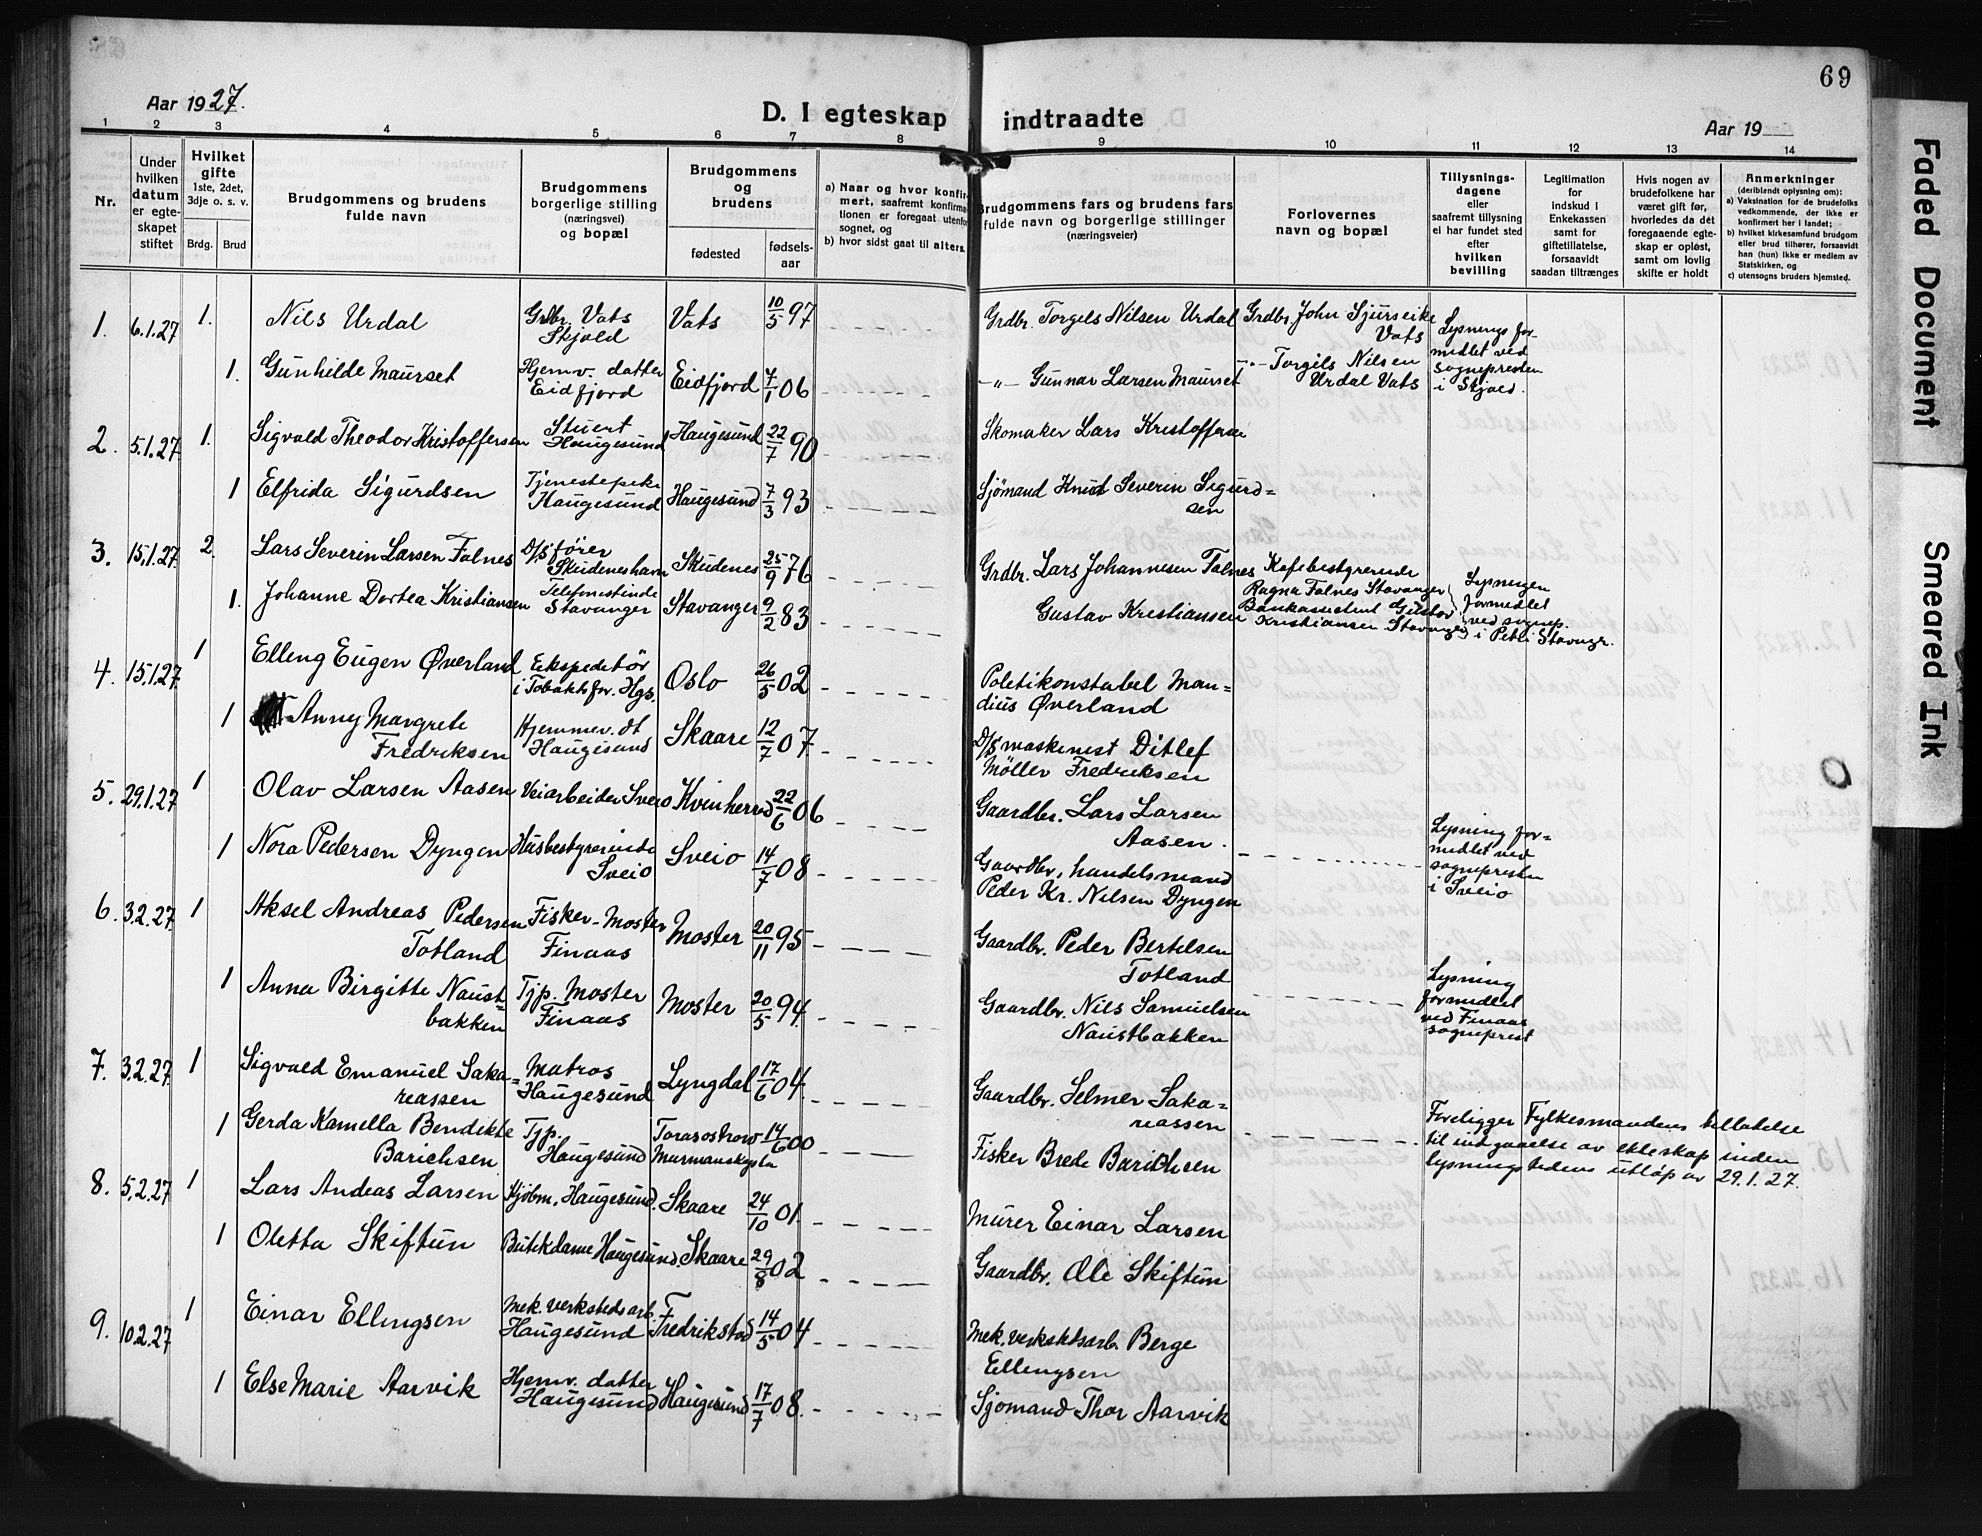 69
Aar 1927.
D. I egteskap indtraadte
Aar 19
1 2 3 4 5 6 7 8 9 10 11 12 13 14
Nr.
Under
hvilken
datum
er egte-
skapet
stiftet
Hvilket
gifte
1ste, 2det,
3dje o. s. v.
Brdg. Brud
Brudgommens og brudens
fulde navn
Brudgommens
borgerlige stilling
(næringsvei)
og bopæl
Brudgommens
og
brudens
fødested
fødsels-
aar
a) Naar og hvor konfir-
mert, saafremt konfirma-
tionen er foregaat utenfor
sognet, og
b) hvor sidst gaat til alters.
Brudgommens fars og brudens fars
fulde navn og borgerlige stillinger
(næringsveier)
Forlovernes
navn og bopæl
Tillysnings-
dagene
eller
saafremt tillysning
ei har fundet sted
efter
hvilken
bevilling
Legitimation
for
indskud i
Enkekassen
samt for
giftetillatelse,
forsaavidt
saadan tiltrænges
Hvis nogen av
brudefolkene har
været gift før,
hvorledes da det
foregaaende egte-
skap er opløst,
samt om lovlig
skifte er holdt
Anmerkninger
(deriblandt oplysning om):
a) Vaksination for de brudefolks
vedkommende, der ikke er
konfirmert her i landet;
b) hvilket kirkesamfund brudgom
eller brud tilhører, forsaavidt
han (hun) ikke er medlem av
Statskirken, og
c) utensogns bruders hjemsted.
1. 6.1.27 1. Nils Urdal Grdbr. Vats
Skjold Vats 10/5 97 Grdbr. Torgels Nilsen Urdal Grdbr. John Sjurseike
Vats Lysnings for-
midlet ved
sognepresten
i Skjold.
1. Gunhilde Maurset Hjemv. datter
Eidfjord Eidfjord 7/1 06 -"- Gunnar Larsen Maurset -"- Torgils Nilsen
Urdal Vats
2. 5.1.27 1. Sigvald Theodor Kristoffersen Stuert
Haugesund Haugesund 22/7 90 Skomaker Lars Kristoffersen
1 Elfrida Sigurdsen Tjenestepike
Haugesund Haugesund 7/3 93 Sjömand Knut Severin Sigurd=
sen
3. 15.1.27 2. Lars Severin Larsen Falnes D/S fører
Skudeneshavn Skudenes 25/9 76 Grdbr. Lars Johannesen Falnes Kafebestyrerinde
Ragna Falnes Stavanger Lysningen
formidlet
ved sognep.
i Petri Stavngr.
1. Johanne Dortea Kristiansen Telefonistinde
Stavanger Stavanger 9/2 83 Gustav Kristiansen Bankassistent Gustav
Kristiansen Stavanger
4. 15.1.27 1 Elling Eugen Øverland Ekspeditør
i Tobaksfor. Hgs. Oslo 26/5 02 Politikonstabel Man=
dius Øverland
1 Anny Margrete
Fredriksen Hjemmev. dt
Haugesund Skaare 12/7 07 D/S maskinist Ditlef
Möller Fredriksen
5. 29.1.27 1 Olav Larsen Aasen Veiarbeider Sveio Kvinherred 22/6 06 Gaardbr. Lars Larsen
Aasen.
1 Nora Pedersen Dyngen Husbestyrerinde
Sveio Sveio 14/7 08 Gaardbr, handelsmand
Peder Kr. Nilsen Dyngen Lysning for=
midlet ved
sognepresten
i Sveio
6. 3.2.27 1 Aksel Andreas Pedersen
Totland Fisker - Moster
Finaas Moster 20/11 95 Gaardbr. Peder Bertelsen
Totland
1 Anna Birgitte Naust=
bakken Tjp. Moster
Finaas Moster 20/5 94 Gaardbr. Nils Samuelsen
Naustbakken Lysning
formidlet
ved Finaas
sogneprest
7. 3.2.27 1 Sigvald Emanuel Saka=
reassen Matros
Haugesund Lyngdal 17/6 04 Gaardbr. Selmer Saka=
reassen
1 Gerda Kamella Bendikte
Barichsen Tjp.
Haugesund Tarasostrow
Murmanskysta 14/6 00 Fisker Brede Barichsen Foreligger Fylkesmandens tillatelse
til indgaaelse av ekteskap inden
lysningstidens utløp av 29.1.27.
8. 5.2.27 1 Lars Andeas Larsen Kjöbm, Haugesund. Skaare 24/10 01 Murer Einar Larsen
1 Oletta Skiftun Butikdame Haugesund Skaare 29/8 02 Gaardbr. Ole Skiftun
9. 10.2.27 1 Einar Ellingsen Mek. verkstedsarb.
Haugesund Fredrikstad 14/5 04 Mek. verkstedsarb. Berge
Ellingsen
1 Else Marie Aarvik Hjemv. datter
Haugesund Haugesund 17/7 08. Sjömand Thor Aarvik
Faded Document
Smeared Ink